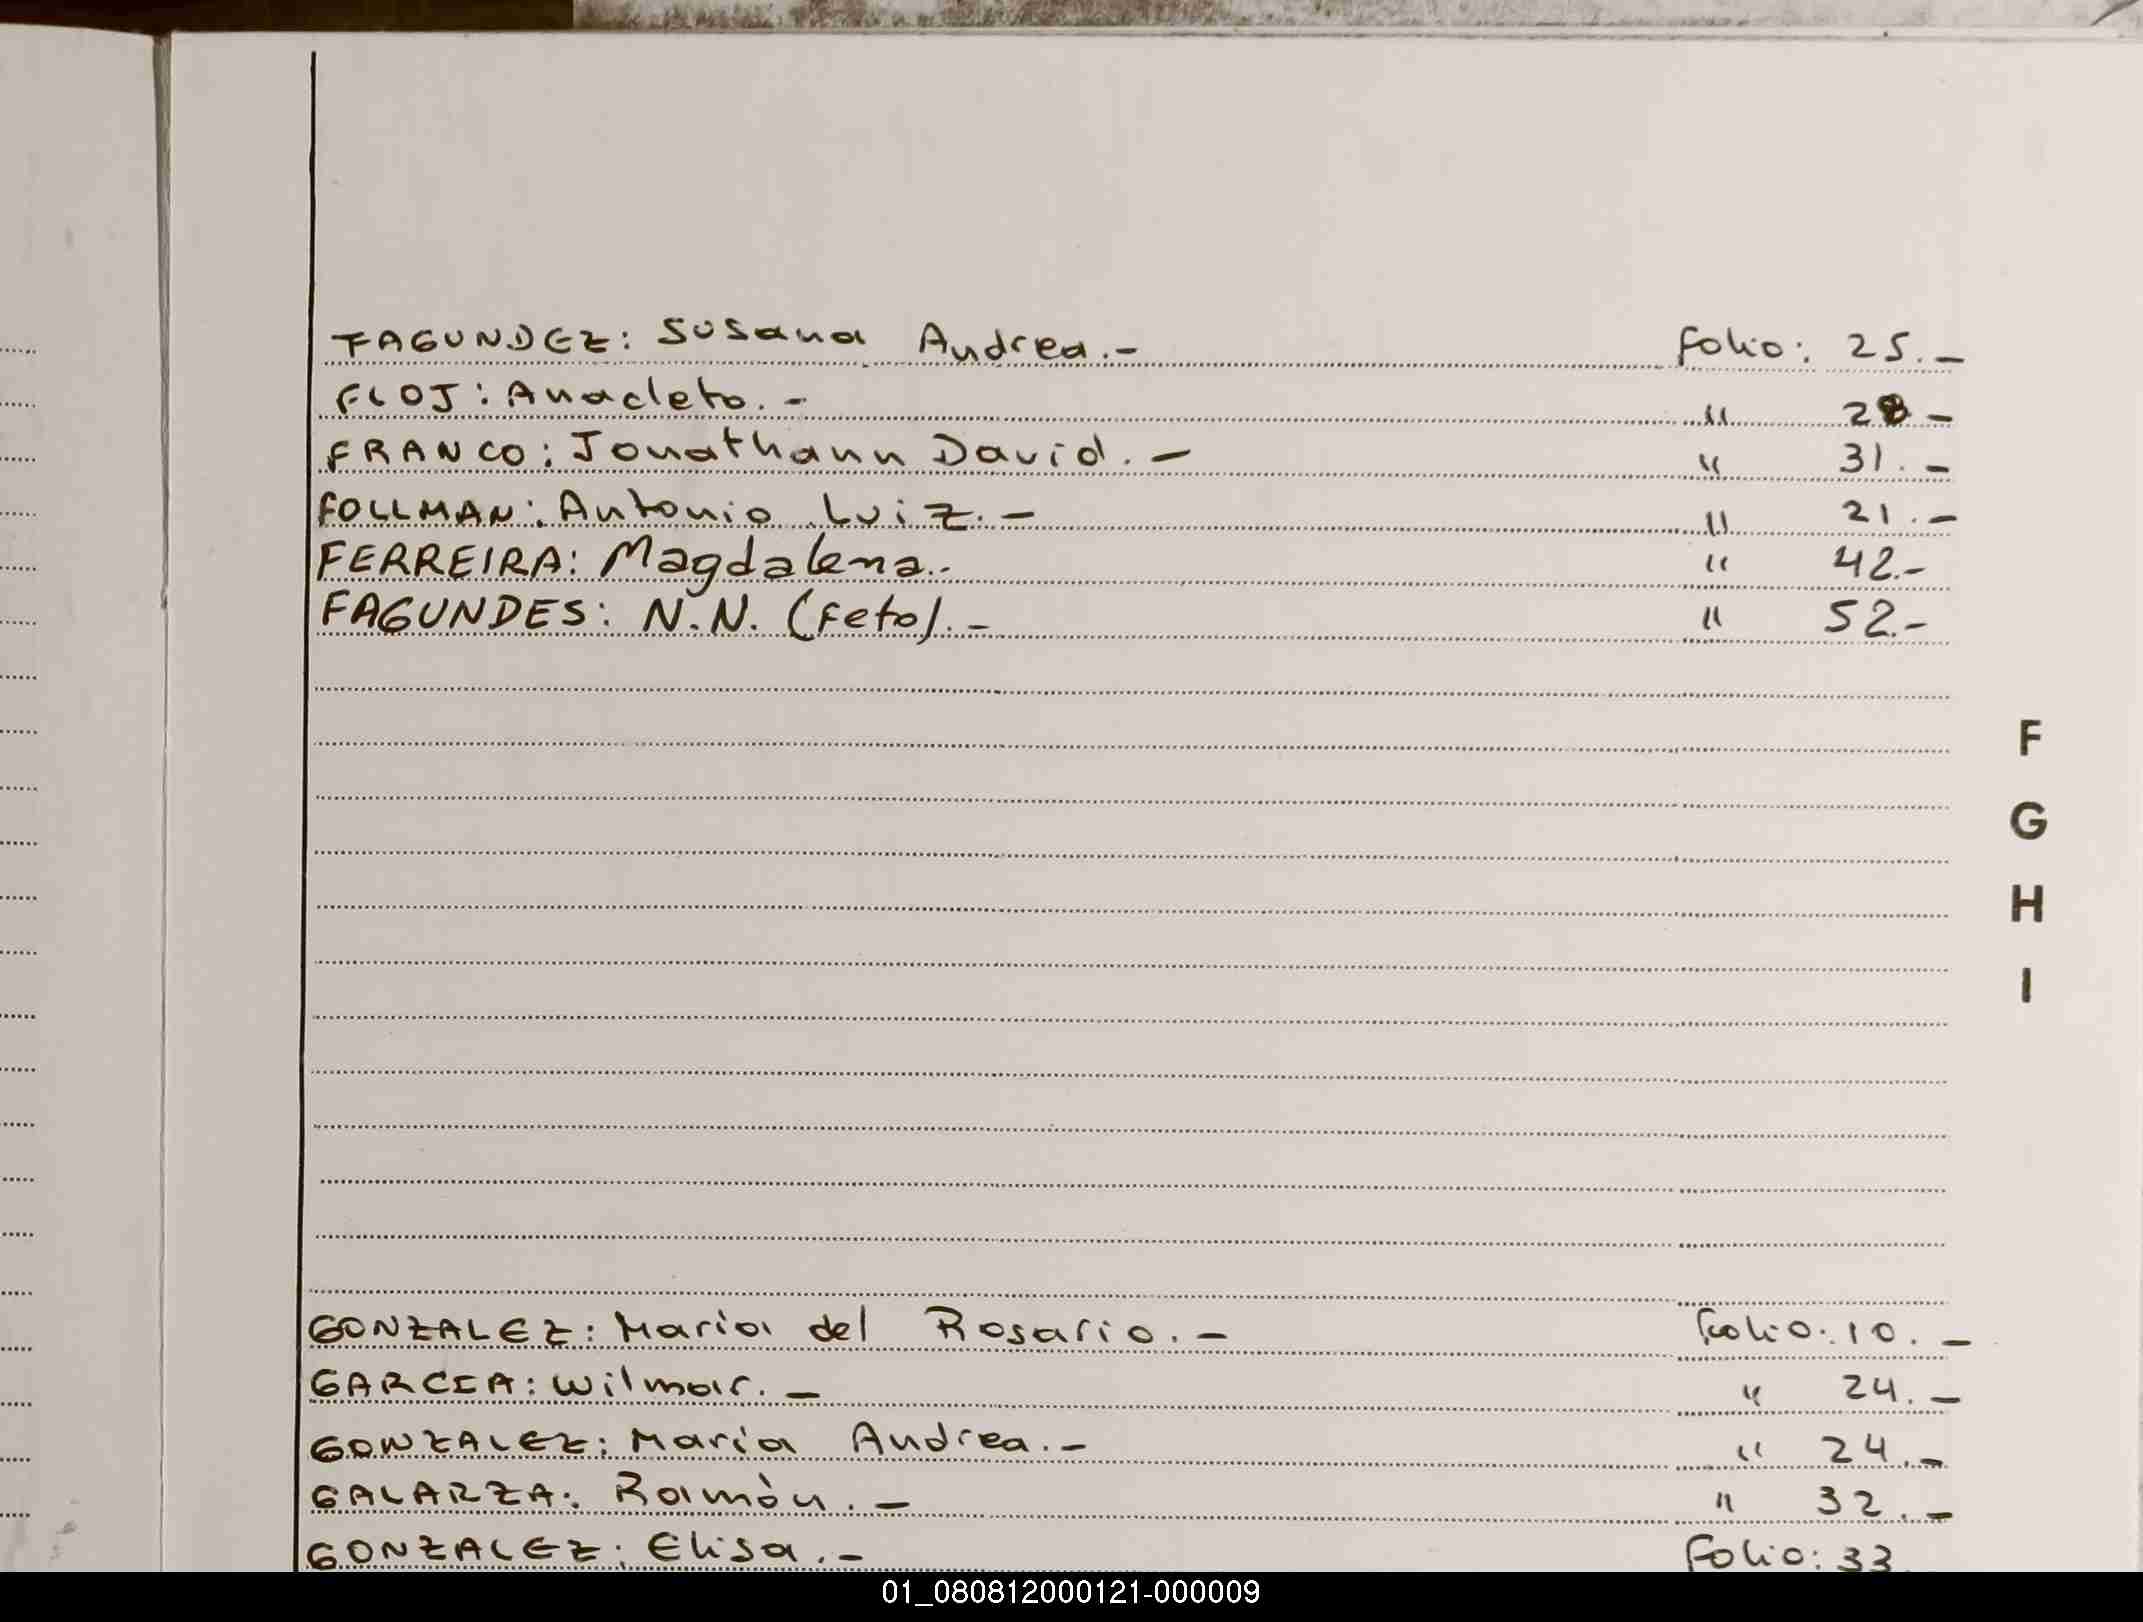 FAGUNDEZ: Susana Andrea.- Folio: 25.-
FLOJ: Anacleto.- " 28 -
FRANCO: Jonathann David.- " 31.-
FOLLMAN: Antonio Luiz.- " 21.-
FERREIRA: Magdalena.- " 42.-
FAGUNDES: N.N. (Feto).- " 52.-
F
G
H
I
GONZALEZ: Maria del Rosario.- Folio: 10.-
GARCIA: Wilmar.- " 24.-
GONZALEZ: Maria Andrea.- " 24.-
GALARZA: Ramòn.- " 32.-
GONZALEZ: Elisa.- Folio: 33
01_080812000121-000009